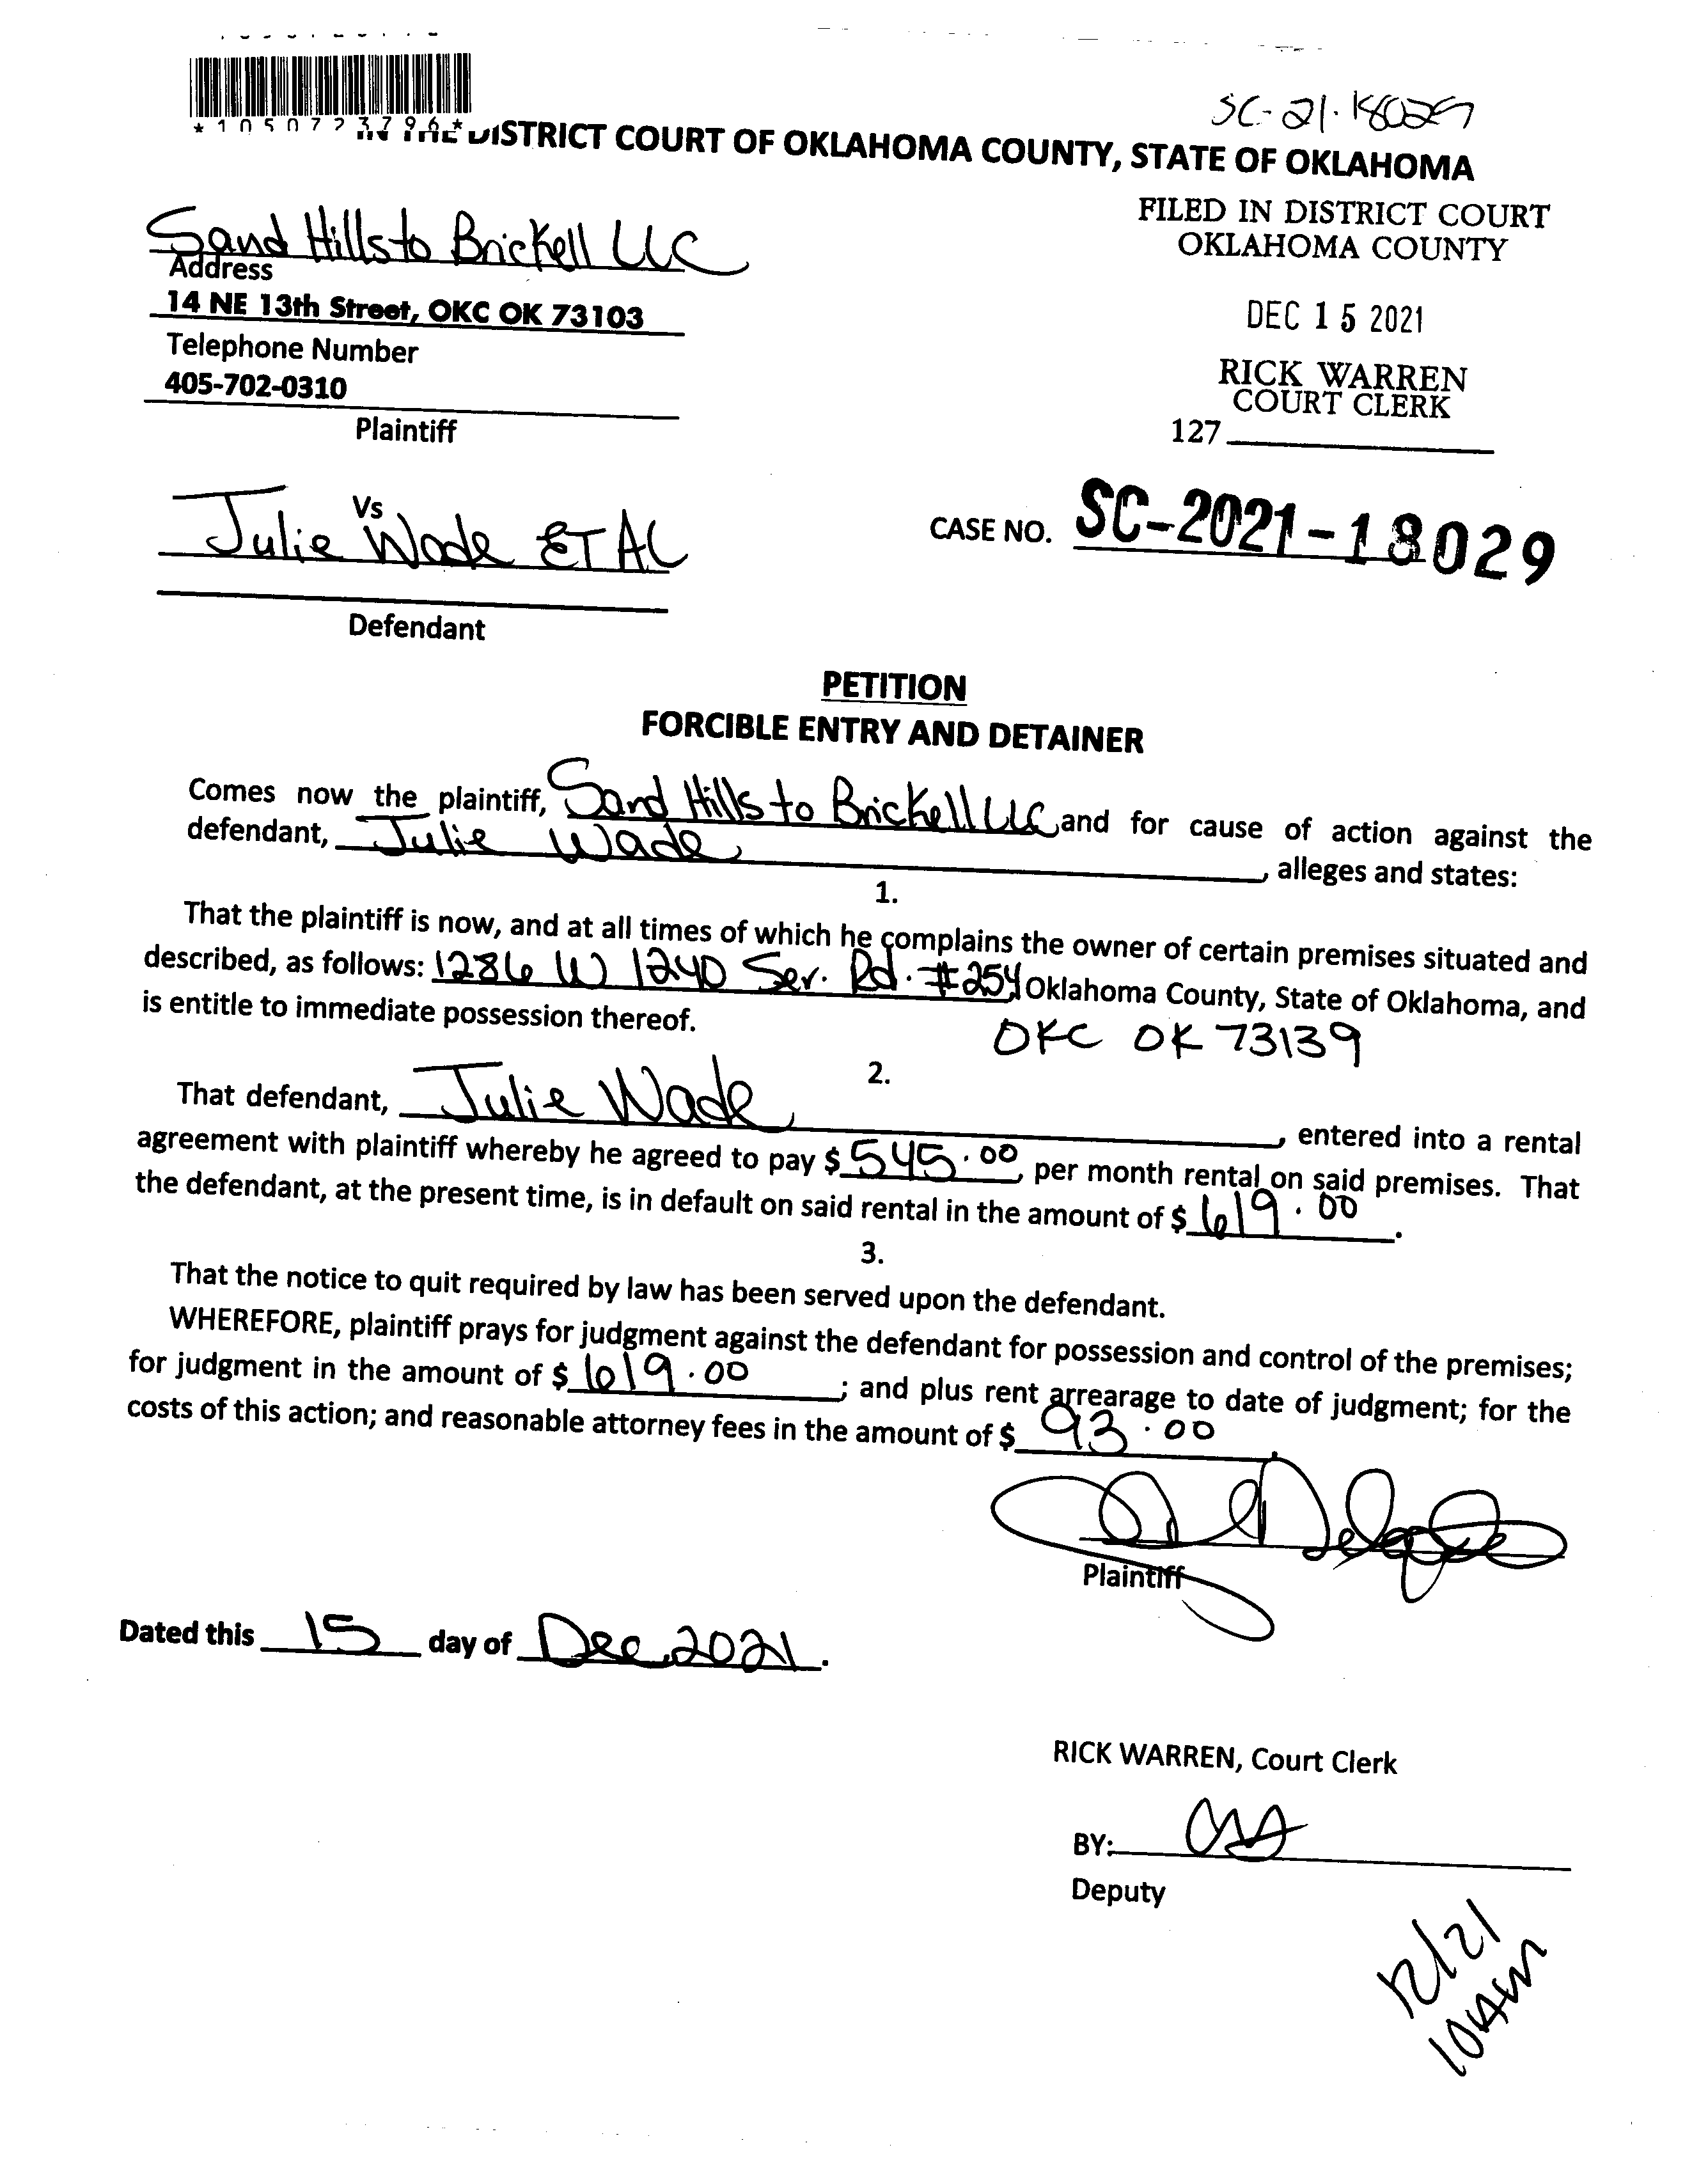 SC-21-18029
*1050723796*
IN THE DISTRICT COURT OF OKLAHOMA COUNTY, STATE OF OKLAHOMA
FILED IN DISTRICT COURT
OKLAHOMA COUNTY
DEC 15 2021
RICK WARREN
COURT CLERK
127
Sand Hills to Brickell LLC
Address
14 NE 13th Street, OKC OK 73103
Telephone Number
405-702-0310
Plaintiff
Vs
Julie Wade ET AL
Defendant
CASE NO. SC-2021-18029
PETITION
FORCIBLE ENTRY AND DETAINER
Comes now the plaintiff, Sand Hills to Brickell LLC and for cause of action against the
defendant, Julie Wade, alleges and states:
1.
That the plaintiff is now, and at all times of which he complains the owner of certain premises situated and
described, as follows: 1286 W I240 Ser. Rd. #254 Oklahoma County, State of Oklahoma, and
is entitle to immediate possession thereof.
OKC OK 73139
2.
That defendant, Julie Wade, entered into a rental
agreement with plaintiff whereby he agreed to pay $ 545.00 per month rental on said premises. That
the defendant, at the present time, is in default on said rental in the amount of $ 619.00.
3.
That the notice to quit required by law has been served upon the defendant.
WHEREFORE, plaintiff prays for judgment against the defendant for possession and control of the premises;
for judgment in the amount of $ 619.00; and plus rent arrearage to date of judgment; for the
costs of this action; and reasonable attorney fees in the amount of $ 93.00
Plaintiff
Dated this 15 day of Dec 2021.
RICK WARREN, Court Clerk
BY:
Deputy
12/21
10AM